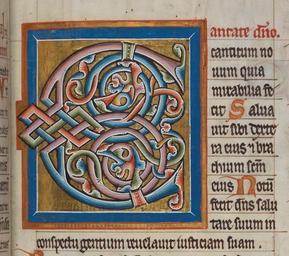 Cantate dño.
canticum no
uum quia
mirabilia fe
cit Salua
uit sibi dexte
ra eius ⁊ bra
chium scm̄
eius Notū
fecit dñs salu
tare suum in
conspectu gentium reuelauit iusticiam suam.